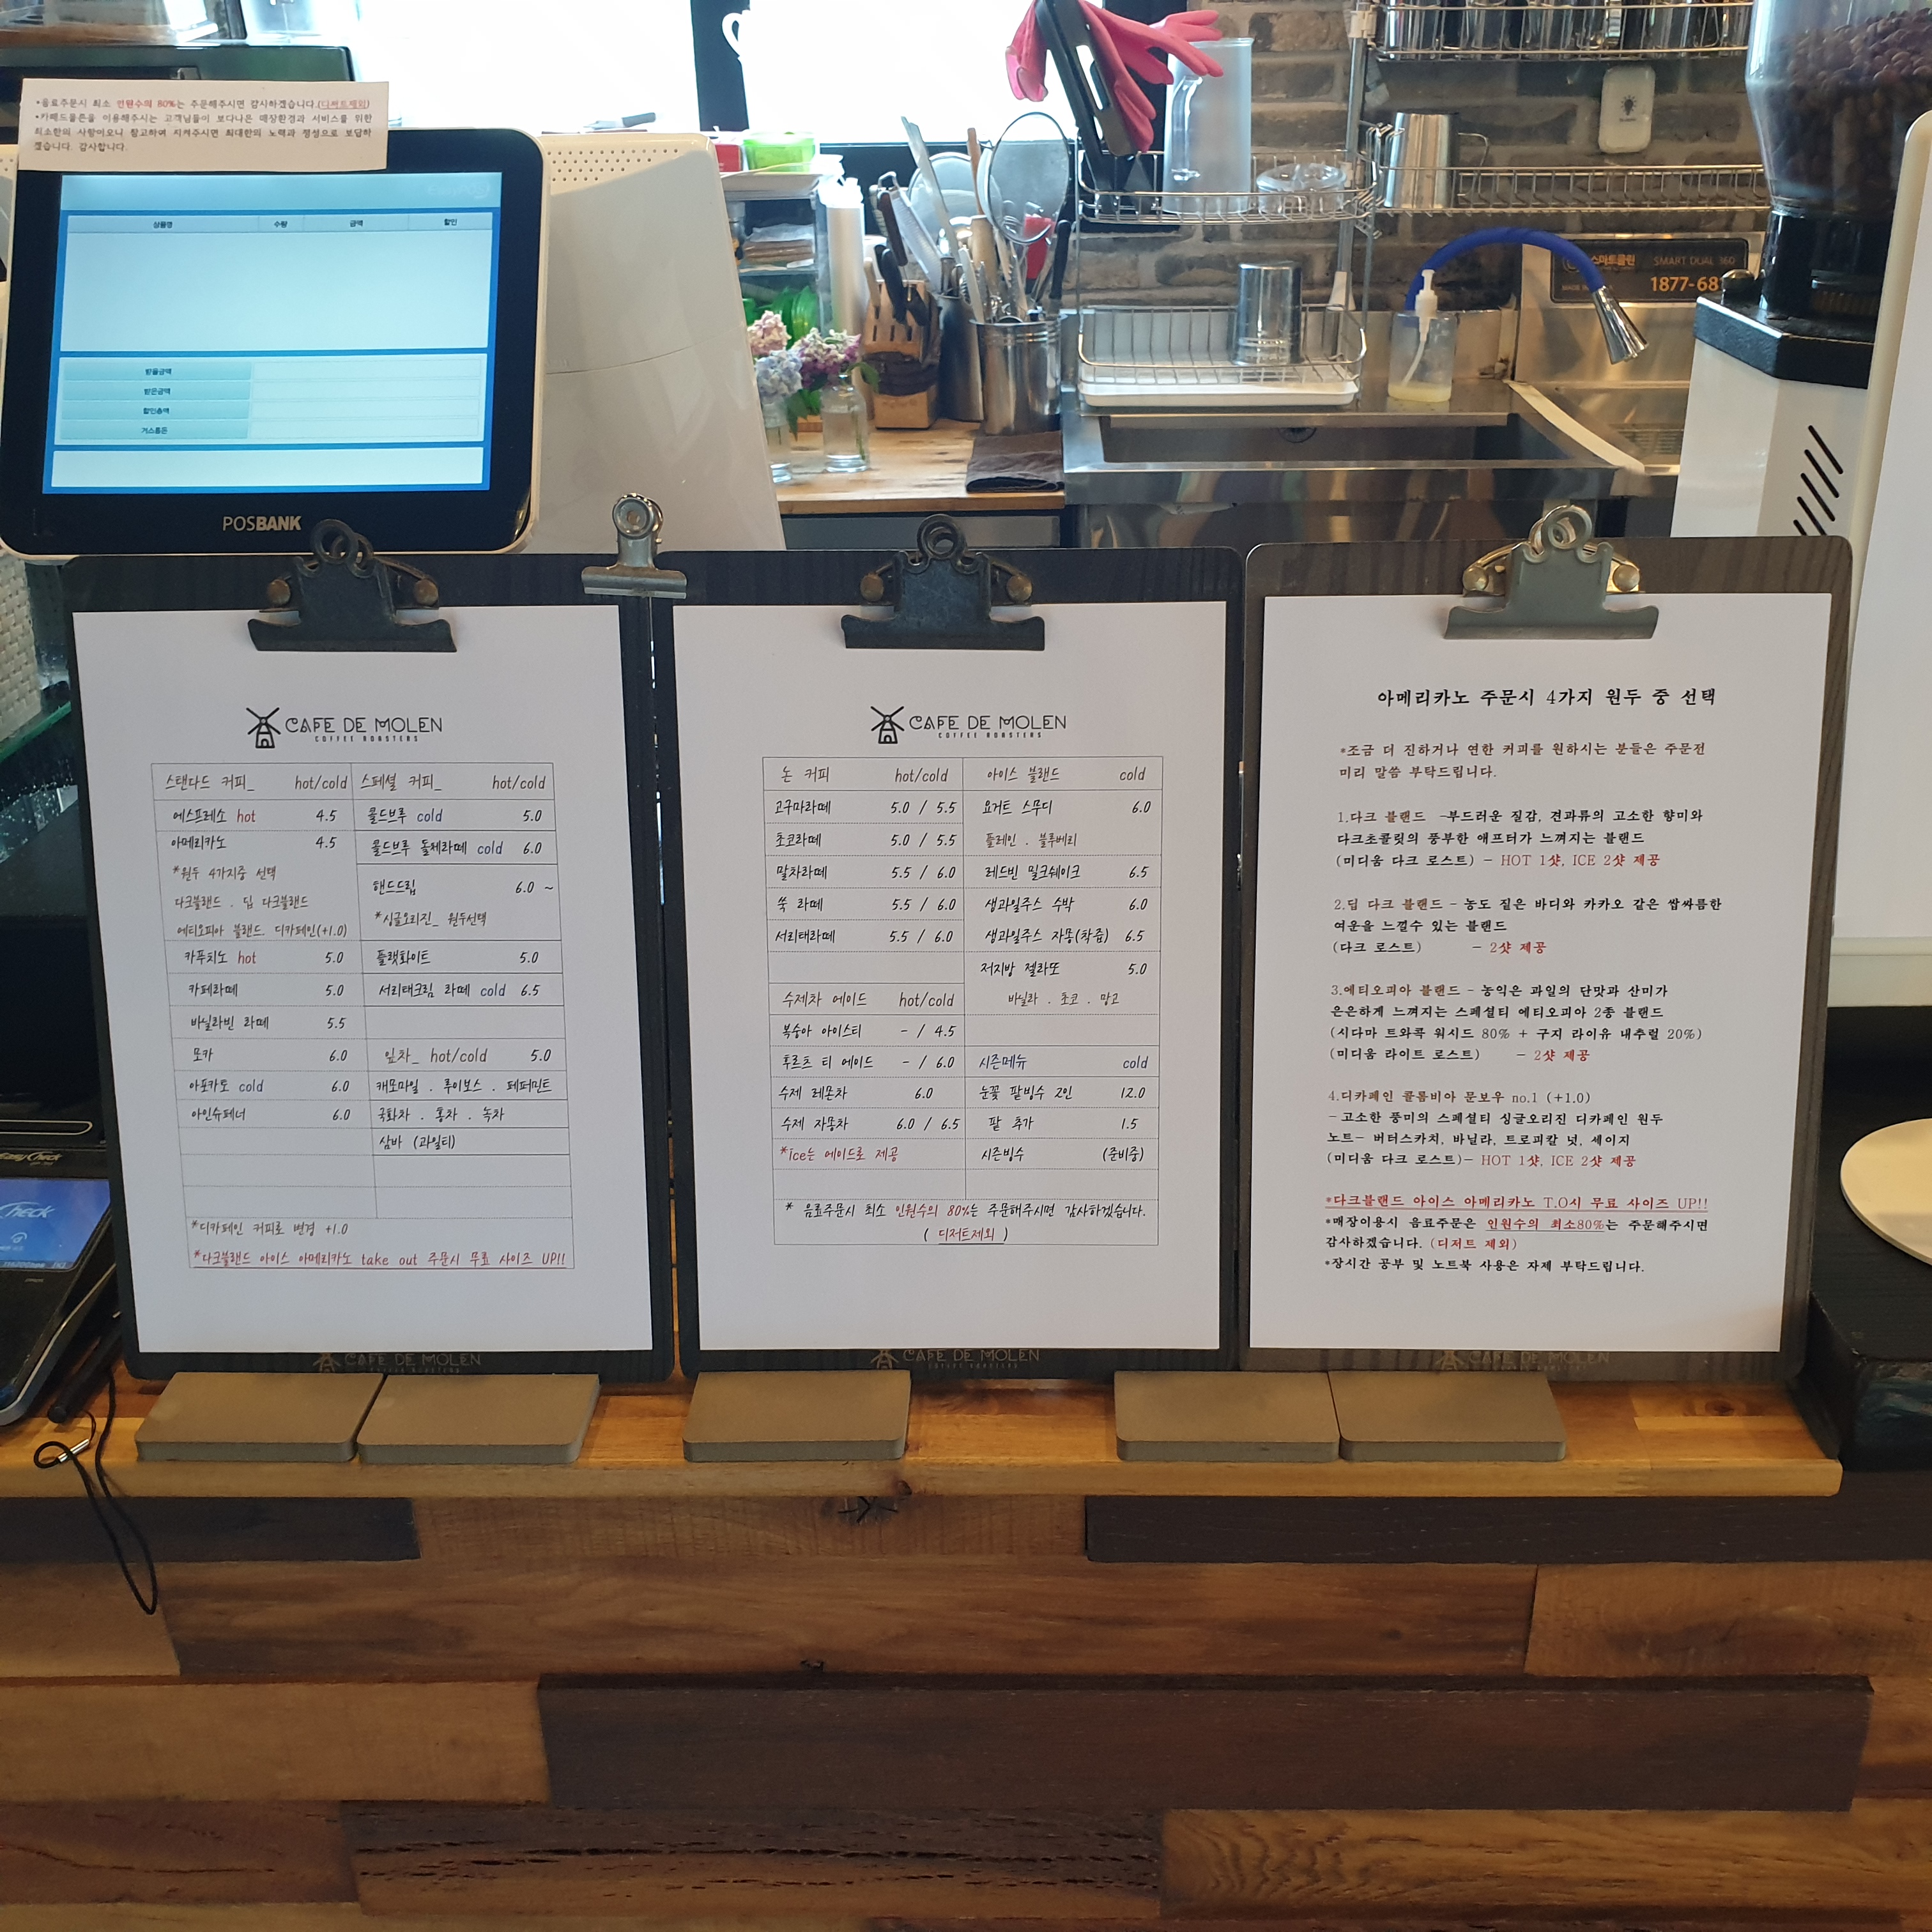 *음료주문시 최소 인원수의 80%는 주문해주시면 감사하겠습니다.(디저트제외)
*카페드몰른을 이용해주시는 고객님들이 보다나은 매장환경과 서비스를 위한
최소한의 사항이오니 참고하여 지켜주시면 최대한의 노력과 정성으로 보답하
겠습니다. 감사합니다.
상품명 수량 금액 할인
받을금액
받은금액
할인총액
거스름돈
POSBANK
스마트클린 SMART DUAL 360
1877-68
EasyCheck
CAFE DE MOLEN
COFFEE ROASTERS
스탠다드 커피_ hot/cold
에스프레소 hot 4.5
아메리카노 4.5
*원두 4가지중 선택
다크블랜드 . 딥 다크블랜드
에티오피아 블랜드. 디카페인(+1.0)
카푸치노 hot 5.0
카페라떼 5.0
바닐라빈 라떼 5.5
모카 6.0
아포카토 cold 6.0
아인슈페너 6.0
스페셜 커피_ hot/cold
콜드브루 cold 5.0
콜드브루 돌체라떼 cold 6.0
핸드드립 6.0 ~
*싱글오리진_ 원두선택
플랫화이트 5.0
서리태크림 라떼 cold 6.5
잎차_ hot/cold 5.0
캐모마일 . 루이보스 . 페퍼민트
국화차 . 홍차 . 녹차
삼바 (과일티)
*디카페인 커피로 변경 +1.0
*다크블랜드 아이스 아메리카노 take out 주문시 무료 사이즈 UP!!
CAFE DE MOLEN
COFFEE ROASTERS
CAFE DE MOLEN
COFFEE ROASTERS
논 커피 hot/cold
고구마라떼 5.0 / 5.5
초코라떼 5.0 / 5.5
말차라떼 5.5 / 6.0
쑥 라떼 5.5 / 6.0
서리태라떼 5.5 / 6.0
수제차 에이드 hot/cold
복숭아 아이스티 - / 4.5
후르츠 티 에이드 - / 6.0
수제 레몬차 6.0
수제 자몽차 6.0 / 6.5
*ice는 에이드로 제공
아이스 블랜드 cold
요거트 스무디 6.0
플레인 . 블루베리
레드빈 밀크쉐이크 6.5
생과일주스 수박 6.0
생과일주스 자몽(착즙) 6.5
저지방 젤라또 5.0
바닐라 . 초코 . 망고
시즌메뉴 cold
눈꽃 팥빙수 2인 12.0
팥 추가 1.5
시즌빙수 (준비중)
* 음료주문시 최소 인원수의 80%는 주문해주시면 감사하겠습니다.
( 디저트제외 )
CAFE DE MOLEN
COFFEE ROASTERS
아메리카노 주문시 4가지 원두 중 선택
*조금 더 진하거나 연한 커피를 원하시는 분들은 주문전
미리 말씀 부탁드립니다.
1.다크 블랜드 -부드러운 질감, 견과류의 고소한 향미와
다크초콜릿의 풍부한 애프터가 느껴지는 블랜드
(미디움 다크 로스트) - HOT 1샷, ICE 2샷 제공
2.딥 다크 블랜드 - 농도 짙은 바디와 카카오 같은 쌉싸름한
여운을 느낄수 있는 블랜드
(다크 로스트) - 2샷 제공
3.에티오피아 블랜드 - 농익은 과일의 단맛과 산미가
은은하게 느껴지는 스페셜티 에티오피아 2종 블랜드
(시다마 트와콕 워시드 80% + 구지 라이유 내추럴 20%)
(미디움 라이트 로스트) - 2샷 제공
4.디카페인 콜롬비아 문보우 no.1 (+1.0)
- 고소한 풍미의 스페셜티 싱글오리진 디카페인 원두
노트- 버터스카치, 바닐라, 트로피칼 넛, 세이지
(미디움 다크 로스트)- HOT 1샷, ICE 2샷 제공
*다크블랜드 아이스 아메리카노 T.O시 무료 사이즈 UP!!
*매장이용시 음료주문은 인원수의 최소80%는 주문해주시면
감사하겠습니다. (디저트 제외)
*장시간 공부 및 노트북 사용은 자제 부탁드립니다.
CAFE DE MOLEN